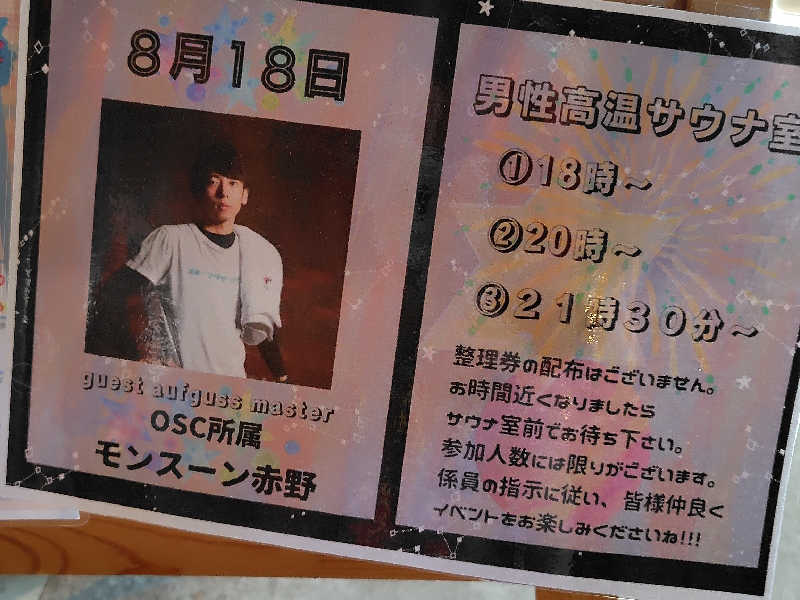 8月18日
guest aufguss master
OSC所属
モンスーン赤野
男性高温サウナ室
①18時～
②20時～
③21時30分～
整理券の配布はございません。
お時間近くなりましたら
サウナ室前でお待ち下さい。
参加人数には限りがございます。
係員の指示に従い、皆様仲良く
イベントをお楽しみくださいね!!!